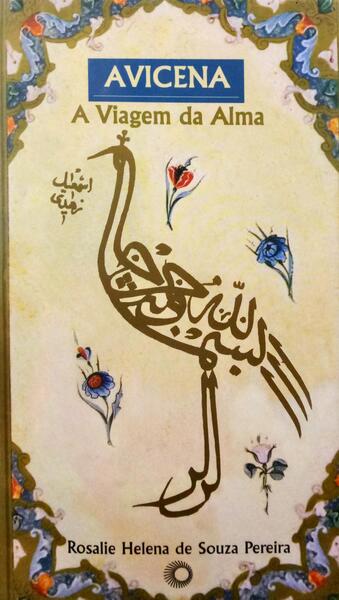 AVICENA
A Viagem da Alma
بسم الله
Rosalie Helena de Souza Pereira